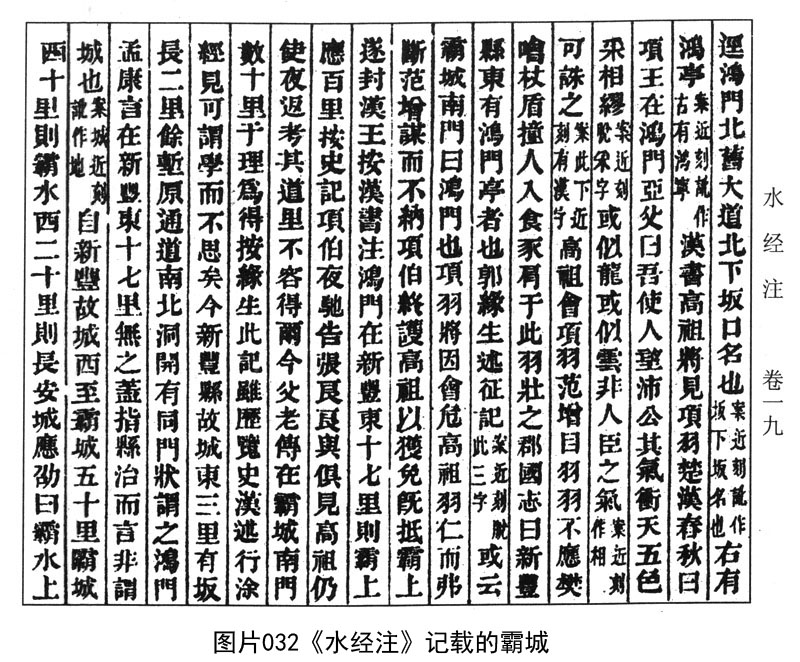 水经注 卷一九
逕鴻門北舊大道北下坂口名也案近刻訛作坂下坂名也右有
鴻亭案近刻訛作古有鴻寧漢書高祖將見項羽楚漢春秋曰
項王在鴻門亞父曰吾使人望沛公其氣衝天五色
采相繆案近刻脫采字或似龍或似雲非人臣之氣案近刻作相
可誅之案此下近刻有漢字高祖會項羽范增目羽羽不應樊
噲杖盾撞人入食豕肩于此羽壯之郡國志曰新豐
縣東有鴻門亭者也郭緣生述征記案近刻脫此三字或云
霸城南門曰鴻門也項羽將因會危高祖羽仁而弗
斷范增謀而不納項伯終護高祖以獲免既抵霸上
遂封漢王按漢書注鴻門在新豐東十七里則霸上
應百里按史記項伯夜馳告張良良與俱見高祖仍
使夜返考其道里不容得爾今父老傳在霸城南門
數十里于理爲得按緣生此記雖歷覽史漢述行涂
經見可謂學而不思矣今新豐縣故城東三里有坂
長二里餘塹原通道南北洞開有同門狀謂之鴻門
孟康言在新豐東十七里無之蓋指縣治而言非謂
城也案城近刻訛作地自新豐故城西至霸城五十里霸城
西十里則霸水西二十里則長安城應劭曰霸水上
图片032《水经注》记载的霸城